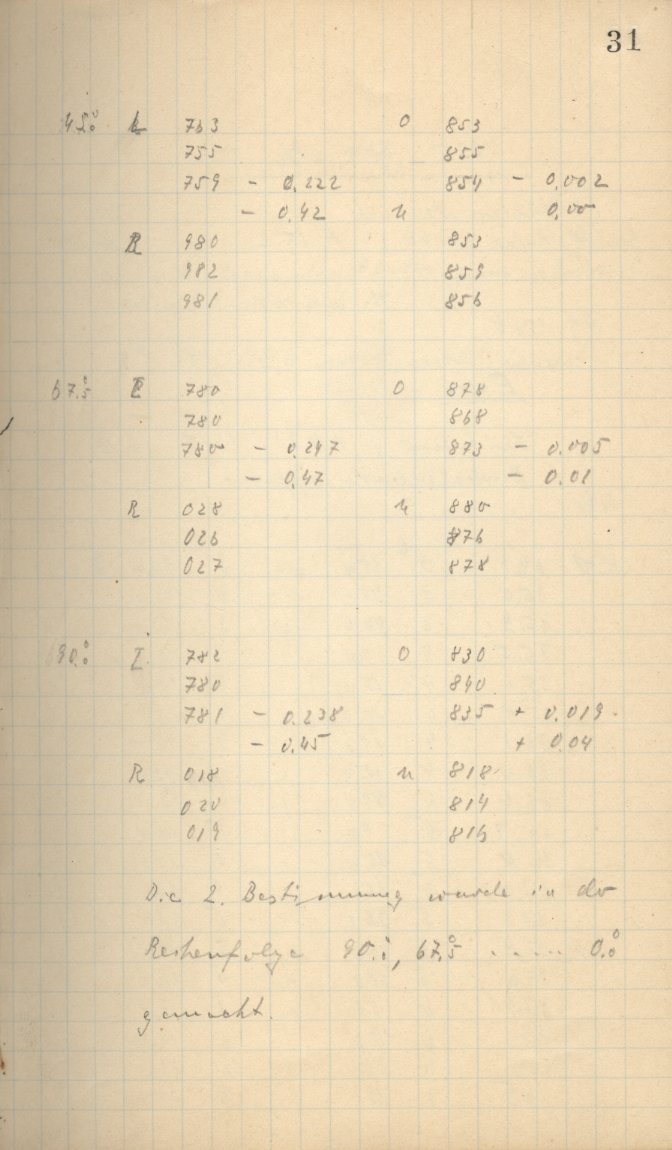 31
45.°0 L 763 O 853
755 855
759 - 0.222 854 - 0,002
- 0,42 u 0,00
R 980 853
982 859
981 856
67.°5 L 780 O 878
780 868
780 - 0.247 873 - 0.005
- 0,47 - 0.01
R 028 u 880
026 876
027 878
90.°0 L 782 O 830
780 840
781 - 0.238 835 + 0.019
- 0,45 + 0,04
R 018 u 818
020 814
019 816
Die 2. Bestimmung wurde in der
Reihenfolge 90.°0, 67.°5 ..... 0.°0
gemacht.